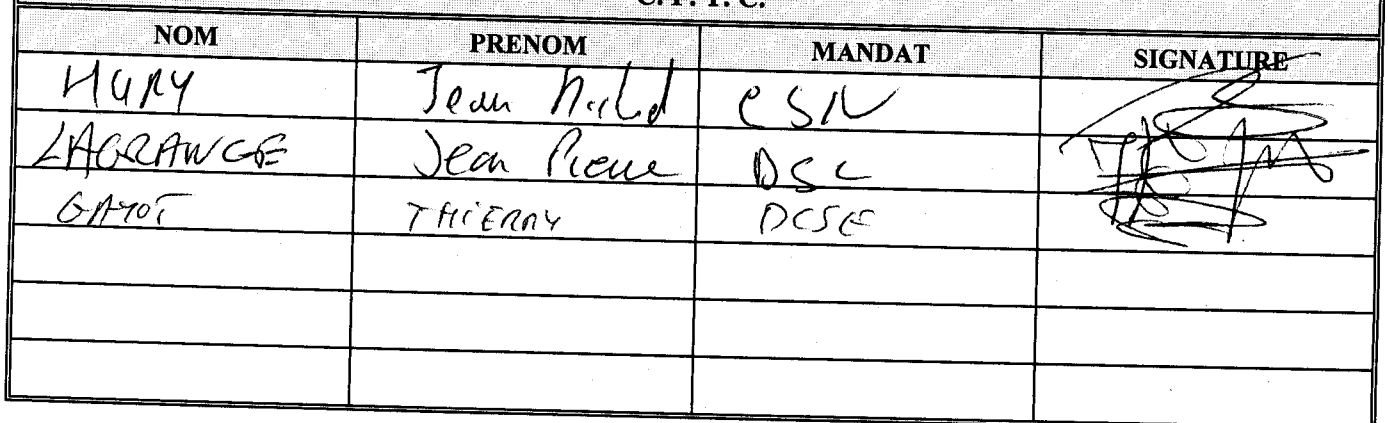 C. F. T. C.
NOM PRENOM MANDAT SIGNATURE
HURY Jean Michel CSN
LAGRANGE Jean Pierre DSC
GAYOT THIERRY DCSE